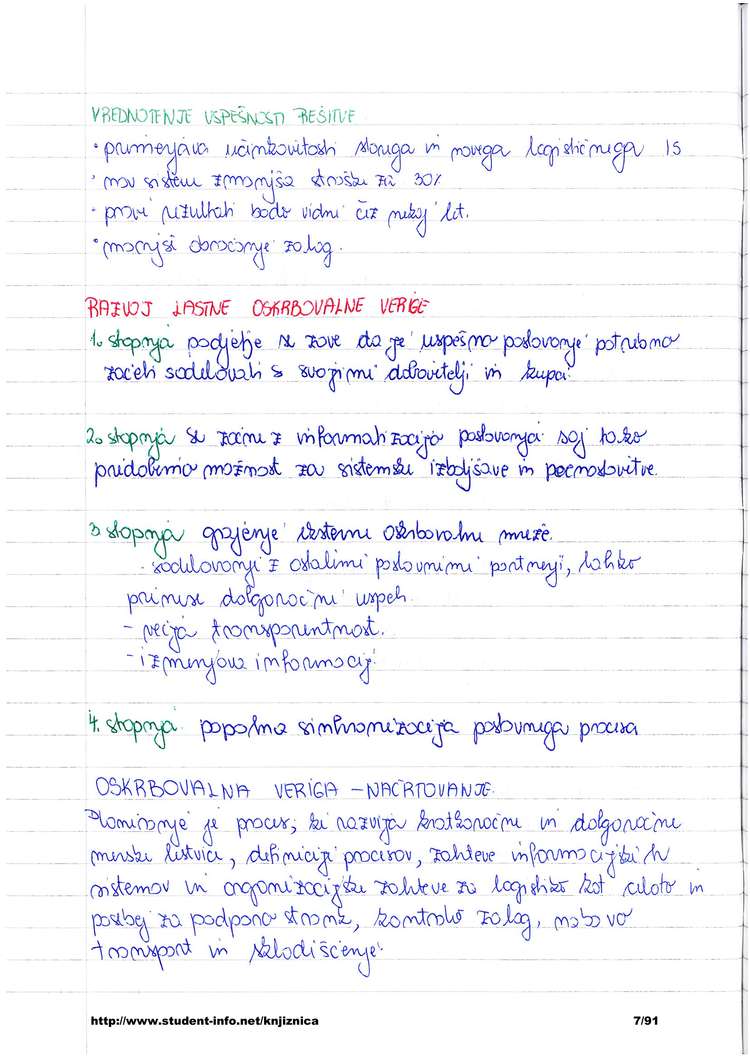 VREDNOTENJE USPEŠNOSTI REŠITVE
• primerjava učinkovitosti starega in novega logističnega IS
• nov sistem zmanjša stroške za 30%
• prvi rezultati bodo vidni čez nekaj let.
• manjši obračanje zalog.
RAZVOJ LASTNE OSKRBOVALNE VERIGE
1. stopnja podjetje se zave da je uspešno poslovanje potrebno
začeti sodelovati s svojimi dobavitelji in kupci
2. stopnja se začne z informatizacijo poslovanja saj tako
pridobimo možnost za sistemske izboljšave in poenostavitve.
3 stopnja grajenje eksterne oskrbovalne mreže.
- sodelovanje z ostalimi poslovnimi partnerji, lahko
prinese dolgoročni uspeh.
- večja transparentnost.
- izmenjava informacij.
4. stopnja popolna sinhronizacija poslovnega procesa
OSKRBOVALNA VERIGA - NAČRTOVANJE.
Planiranje je proces, ki razvija kratkoročne in dolgoročne
merske lestvice, definicije procesov, zahteve informacijskih
sistemov in organizacijske zahteve za logistiko kot celoto in
posebej za podporo strank, kontrolo zalog, nabavo
transport in skladiščenje.
http://www.student-info.net/knjiznica 7/91